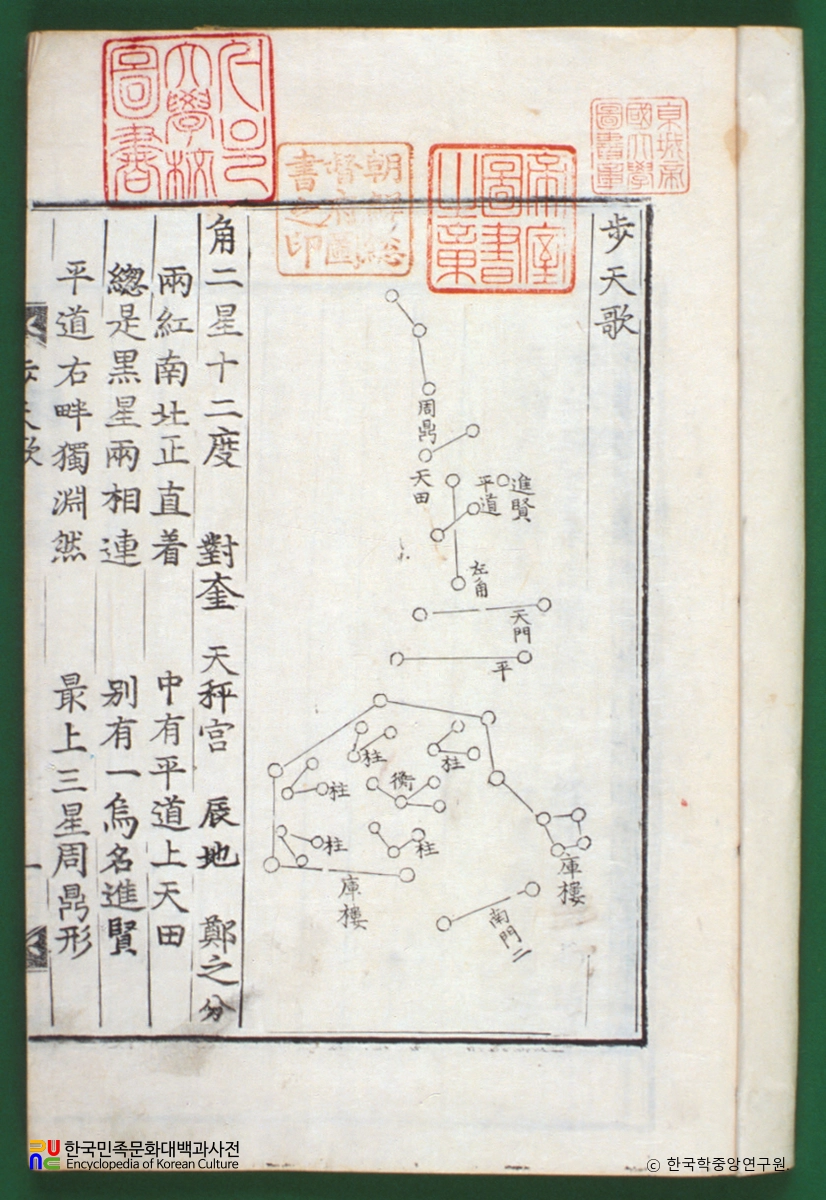 步天歌
周鼎
天田
平道
進賢
左角
天門
平
柱
柱
衡
柱
柱
柱
庫樓
庫樓
南門二
角二星十二度 對奎 天秤宮 辰地 鄭之分
兩紅南北正直着 中有平道上天田
總是黑星兩相連 別有一烏名進賢
平道右畔獨淵然 最上三星周鼎形
步天歌
一
帝室
圖書
之章
朝鮮總
督府圖
書之印
京城帝
國大學
圖書章
大學校
圖書
한국민족문화대백과사전
Encyclopedia of Korean Culture
© 한국학중앙연구원